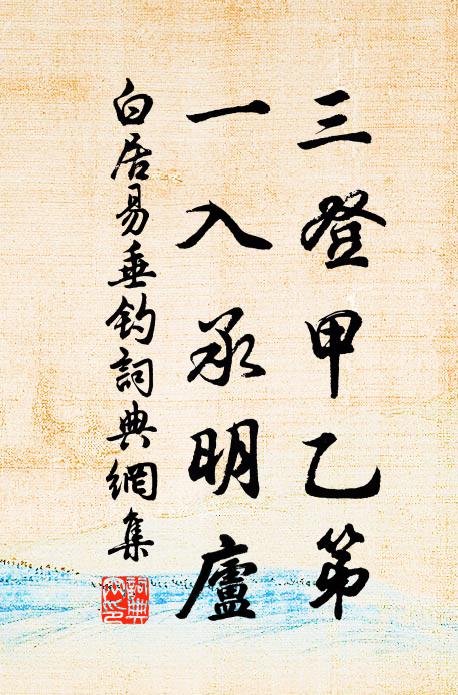 三登甲乙第
一入承明廬
白居易垂釣詞典網集